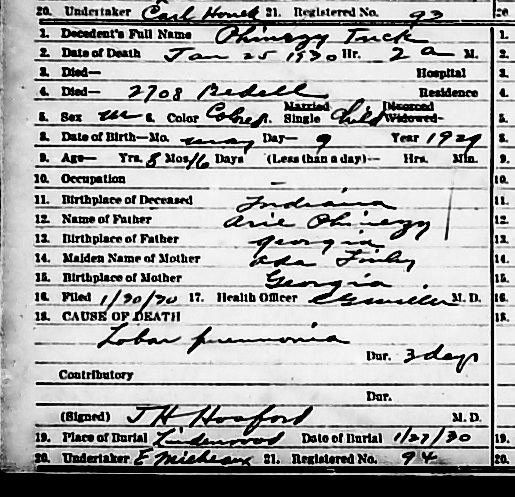 20. Undertaker Carl Houck 21. Registered No. 93 20.
1. Decedent's Full Name Phinezy Tuck 1.
2. Date of Death Jan 25 1930 Hr. 2 a M. 2.
3. Died— Hospital 3.
4. Died— 2708 Bedell Residence 4.
5. Sex m 6. Color Colored Married Single Child Divorced Widowed 5.
8. Date of Birth—Mo. may Day— 9 Year 1929 8.
9. Age— Yrs. 8 Mos. 16 Days (Less than a day)— Hrs. Min. 9.
10. Occupation — 10.
11. Birthplace of Deceased Indiana 11.
12. Name of Father Arie Phinezy 12.
13. Birthplace of Father Georgia 13.
14. Maiden Name of Mother Ada Finley 14.
15. Birthplace of Mother Georgia 15.
16. Filed 1/30/30 17. Health Officer M. D. 16.
18. CAUSE OF DEATH 18.
Lobar pneumonia
Dur. 3 days
Contributory
Dur.
(Signed) J H Hosford M. D.
19. Place of Burial Lindenwood Date of Burial 1/27/30 19.
20. Undertaker E Micheaux 21. Registered No. 94 20.